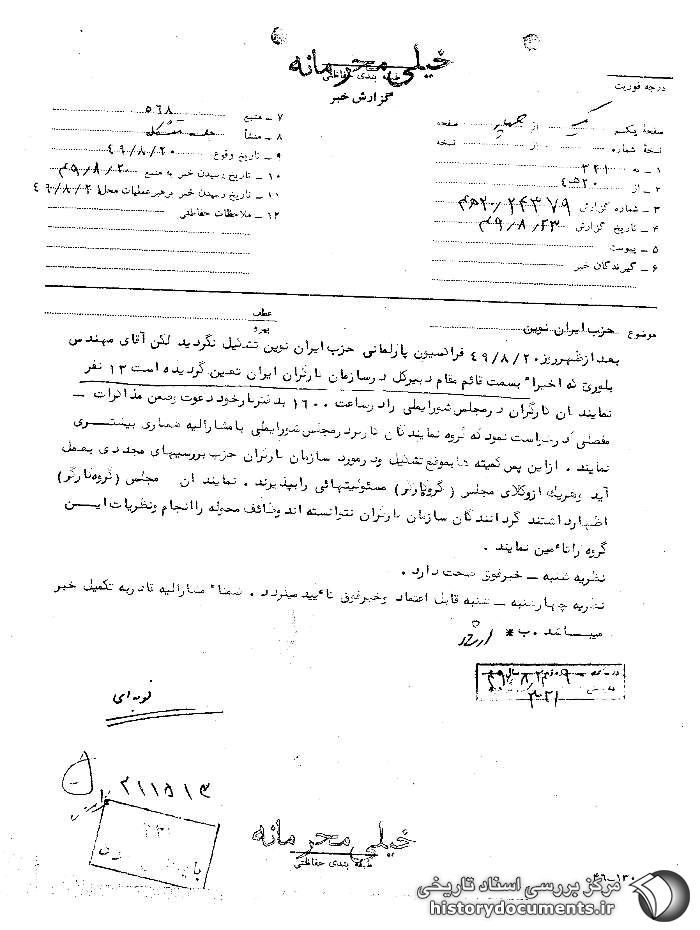 خیلی محرمانه
طبقه بندی حفاظتی
گزارش خبر
درجه فوریت
صفحه یکم از صفحه
نسخه شماره از نسخه
۱ ـ به ۳۲۱
۲ ـ از ۲۰هـ۴
۳ ـ شماره گزارش ۲۰/۲۴۳۷۹هـ۴
۴ ـ تاریخ گزارش ۴۹/۸/۲۳
۵ ـ پیوست
۶ ـ گیرندگان خبر
۷ ـ منبع ۵۶۸
۸ ـ منشأ
۹ ـ تاریخ وقوع ۴۹/۸/۲۰
۱۰ ـ تاریخ رسیدن خبر به منبع ۴۹/۸/۲۰
۱۱ ـ تاریخ رسیدن خبر برهبر عملیات محل ۴۹/۸/۲۱
۱۲ ـ ملاحظات حفاظتی
موضوع حزب ایران نوین
عطف
پیرو
بعد از ظهر روز ۴۹/۸/۲۰ فراکسیون پارلمانی حزب ایران نوین تشکیل نگردید لکن آقای مهندس
بلوری که اخیرا" بسمت قائم مقام دبیرکل در سازمان کارگران ایران تعیین گردیده است ۱۳ نفر
نمایندگان کارگران در مجلس شورایملی را در ساعت ۱۶۰۰ بدفتر کار خود دعوت و ضمن مذاکرات ـ
مفصلی درخواست نمود که گروه نمایندگان کارگر در مجلس شورایملی با مشارالیه همکاری بیشتری
نمایند . از این پس کمیته ها بموقع تشکیل و در مورد سازمان کارگران حزب بررسیهای مجددی بعمل
آید و هریک از وکلای مجلس ( گروه کارگر ) مسئولیتهائی را بپذیرند . نمایندگان مجلس (گروه کارگر)
اظهار داشتند گردانندگان سازمان کارگران نتوانسته اند وظائف محوله را انجام و نظریات ایـــن
گروه را تأمین نمایند .
نظریه شنبه ـ خبر فوق صحت دارد .
نظریه چهارشنبه ـ شنبه قابل اعتماد و خبر فوق تأیید میگردد . ضمنا" مشارالیه قادر به تکمیل خبر
میباشد . ب*
نوبه ای
۳۱۱۵۱۳
خیلی محرمانه
طبقه بندی حفاظتی
۴۶-۱۳۰
مرکز بررسی اسناد تاریخی
historydocuments.ir